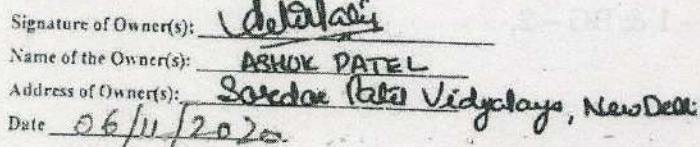 -1 & BG-2,
Signature of Owner(s):
Name of the Owner(s): ASHOK PATEL
Address of Owner(s): Sardar Patel Vidyalaya, New Delhi
Date 06/11/2020